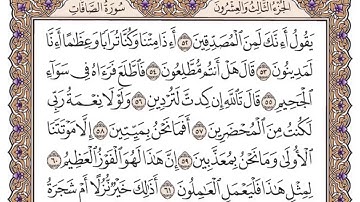 سورة الصافات الجزء الثالث والعشرون
يَقُولُ أَءِنَّكَ لَمِنَ ٱلْمُصَدِّقِينَ ٥٢ أَءِذَا مِتْنَا وَكُنَّا تُرَابًا وَعِظَٰمًا أَءِنَّا
لَمَدِينُونَ ٥٣ قَالَ هَلْ أَنتُم مُّطَّلِعُونَ ٥٤ فَٱطَّلَعَ فَرَءَاهُ فِى سَوَآءِ
ٱلْجَحِيمِ ٥٥ قَالَ تَٱللَّهِ إِن كِدتَّ لَتُرْدِينِ ٥٦ وَلَوْلَا نِعْمَةُ رَبِّى
لَكُنتُ مِنَ ٱلْمُحْضَرِينَ ٥٧ أَفَمَا نَحْنُ بِمَيِّتِينَ ٥٨ إِلَّا مَوْتَتَنَا
ٱلْأُولَىٰ وَمَا نَحْنُ بِمُعَذَّبِينَ ٥٩ إِنَّ هَٰذَا لَهُوَ ٱلْفَوْزُ ٱلْعَظِيمُ ٦٠
لِمِثْلِ هَٰذَا فَلْيَعْمَلِ ٱلْعَٰمِلُونَ ٦١ أَذَٰلِكَ خَيْرٌ نُّزُلًا أَمْ شَجَرَةُ